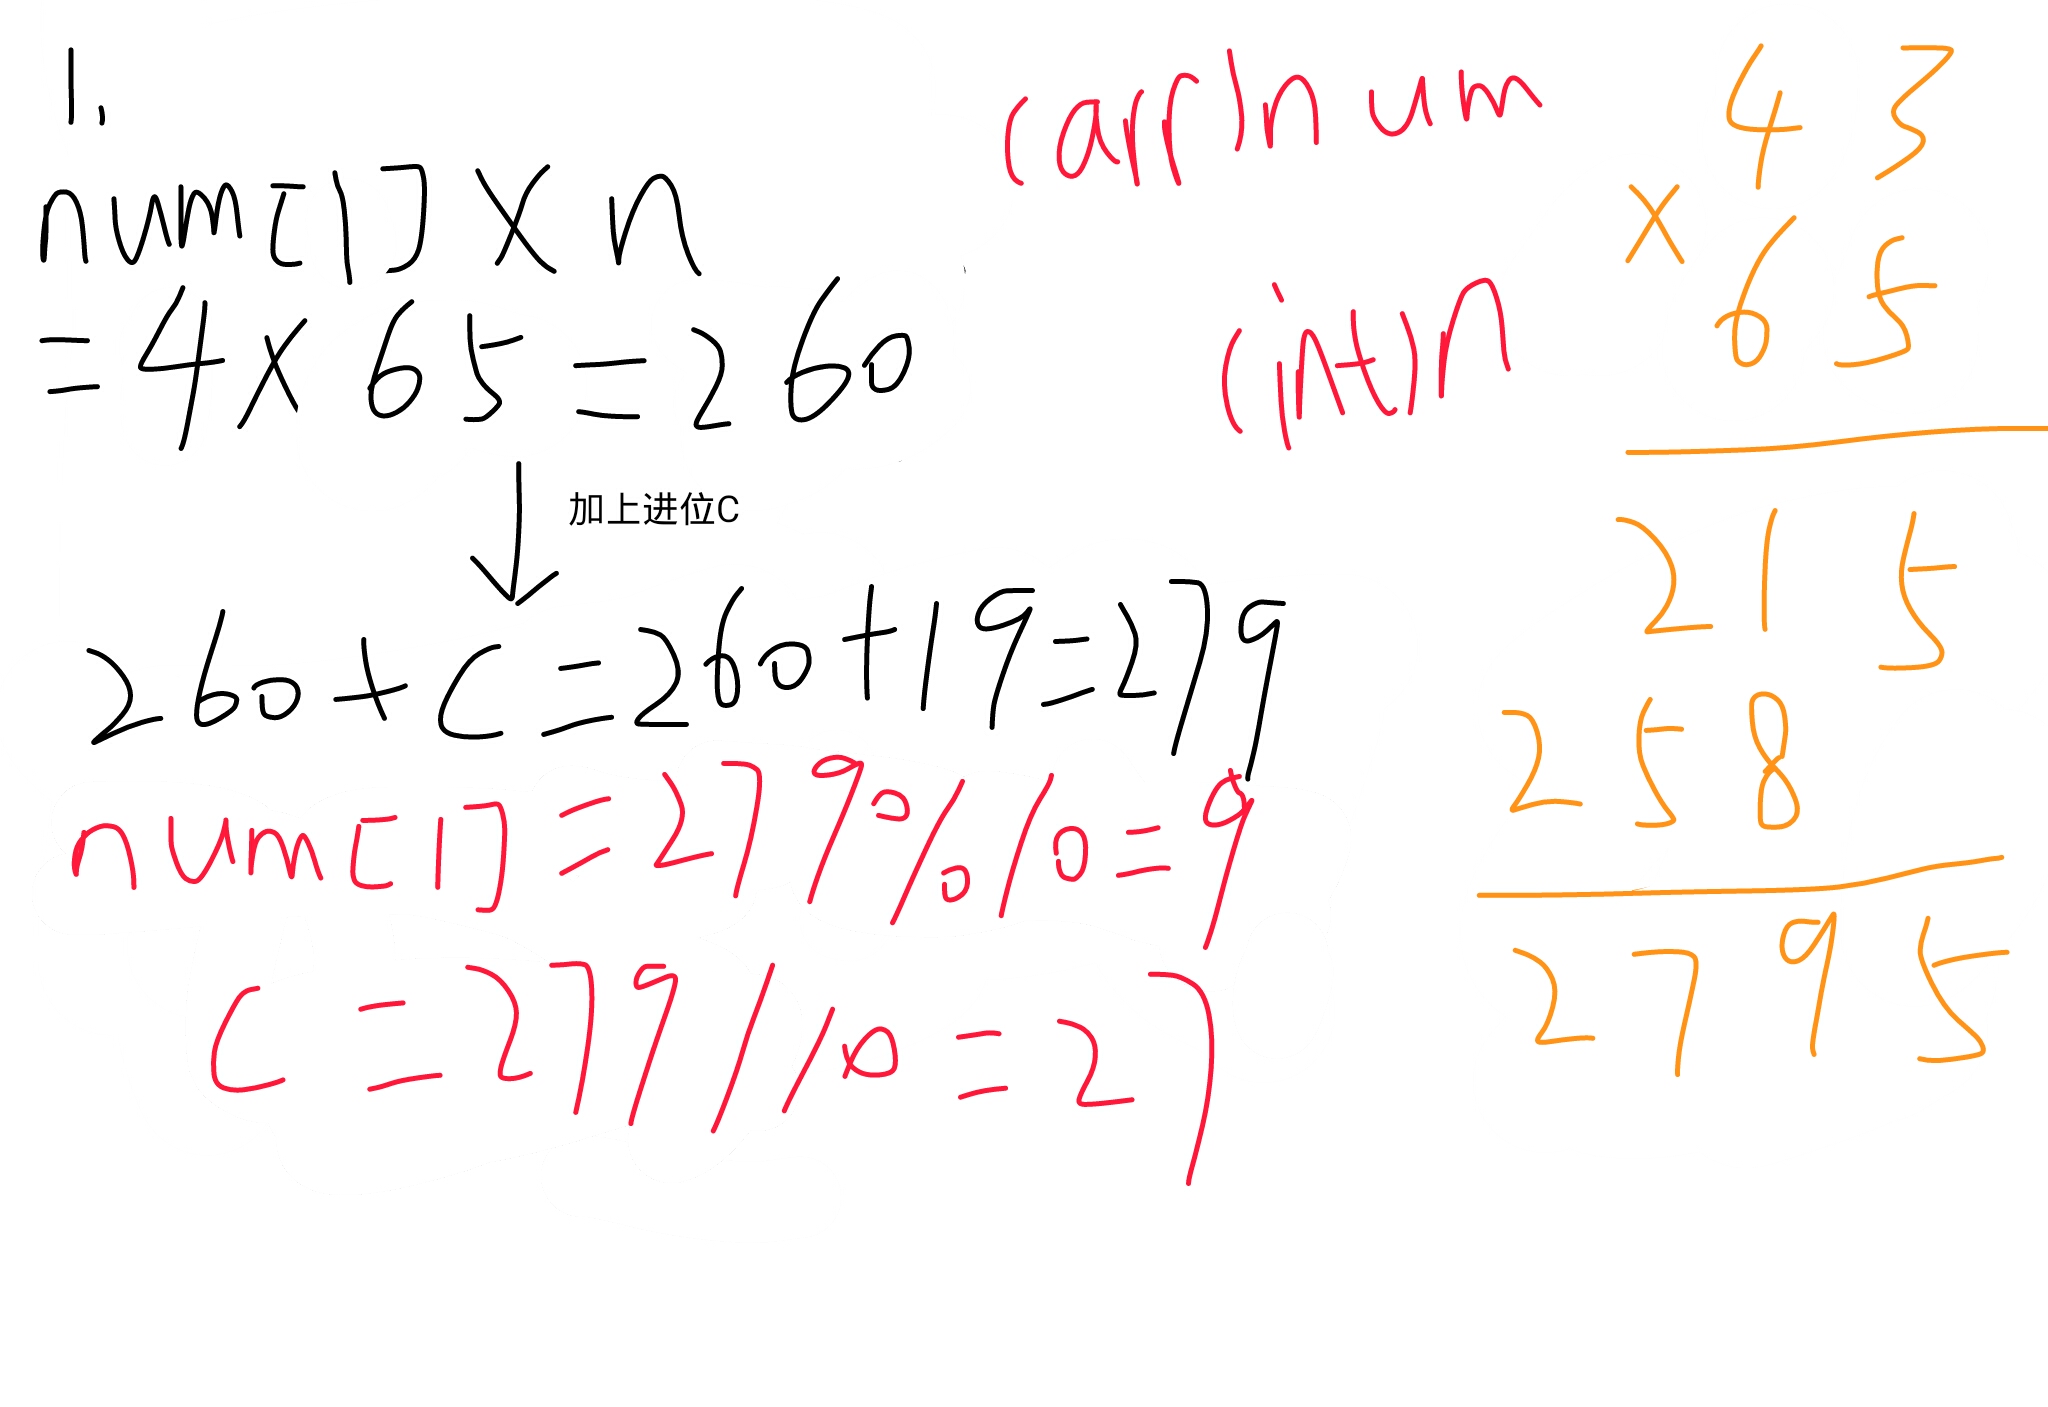 1.
num[1]×n
=4×65=260
加上进位C
260+C=260+19=279
num[1]=279%10=9
C=279/10=27
(arr)num
(int)n
43
×65
215
258
2795